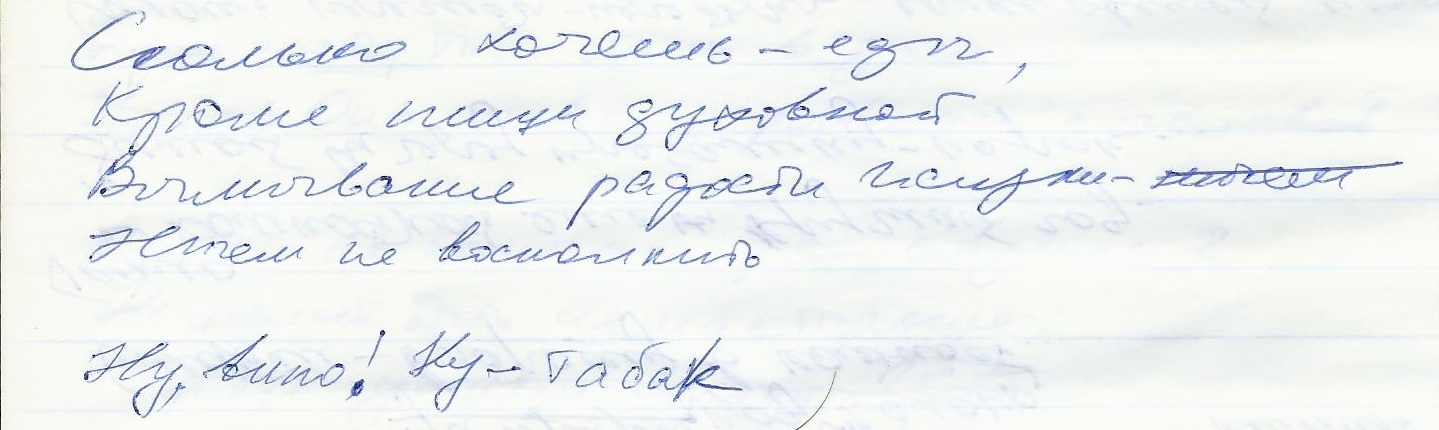 Сколько хочешь - еды,
Кроме пищи духовной
Вымывание радости жизни - ничем
Ничем не восполнить
Ну, вино! Ну - табак